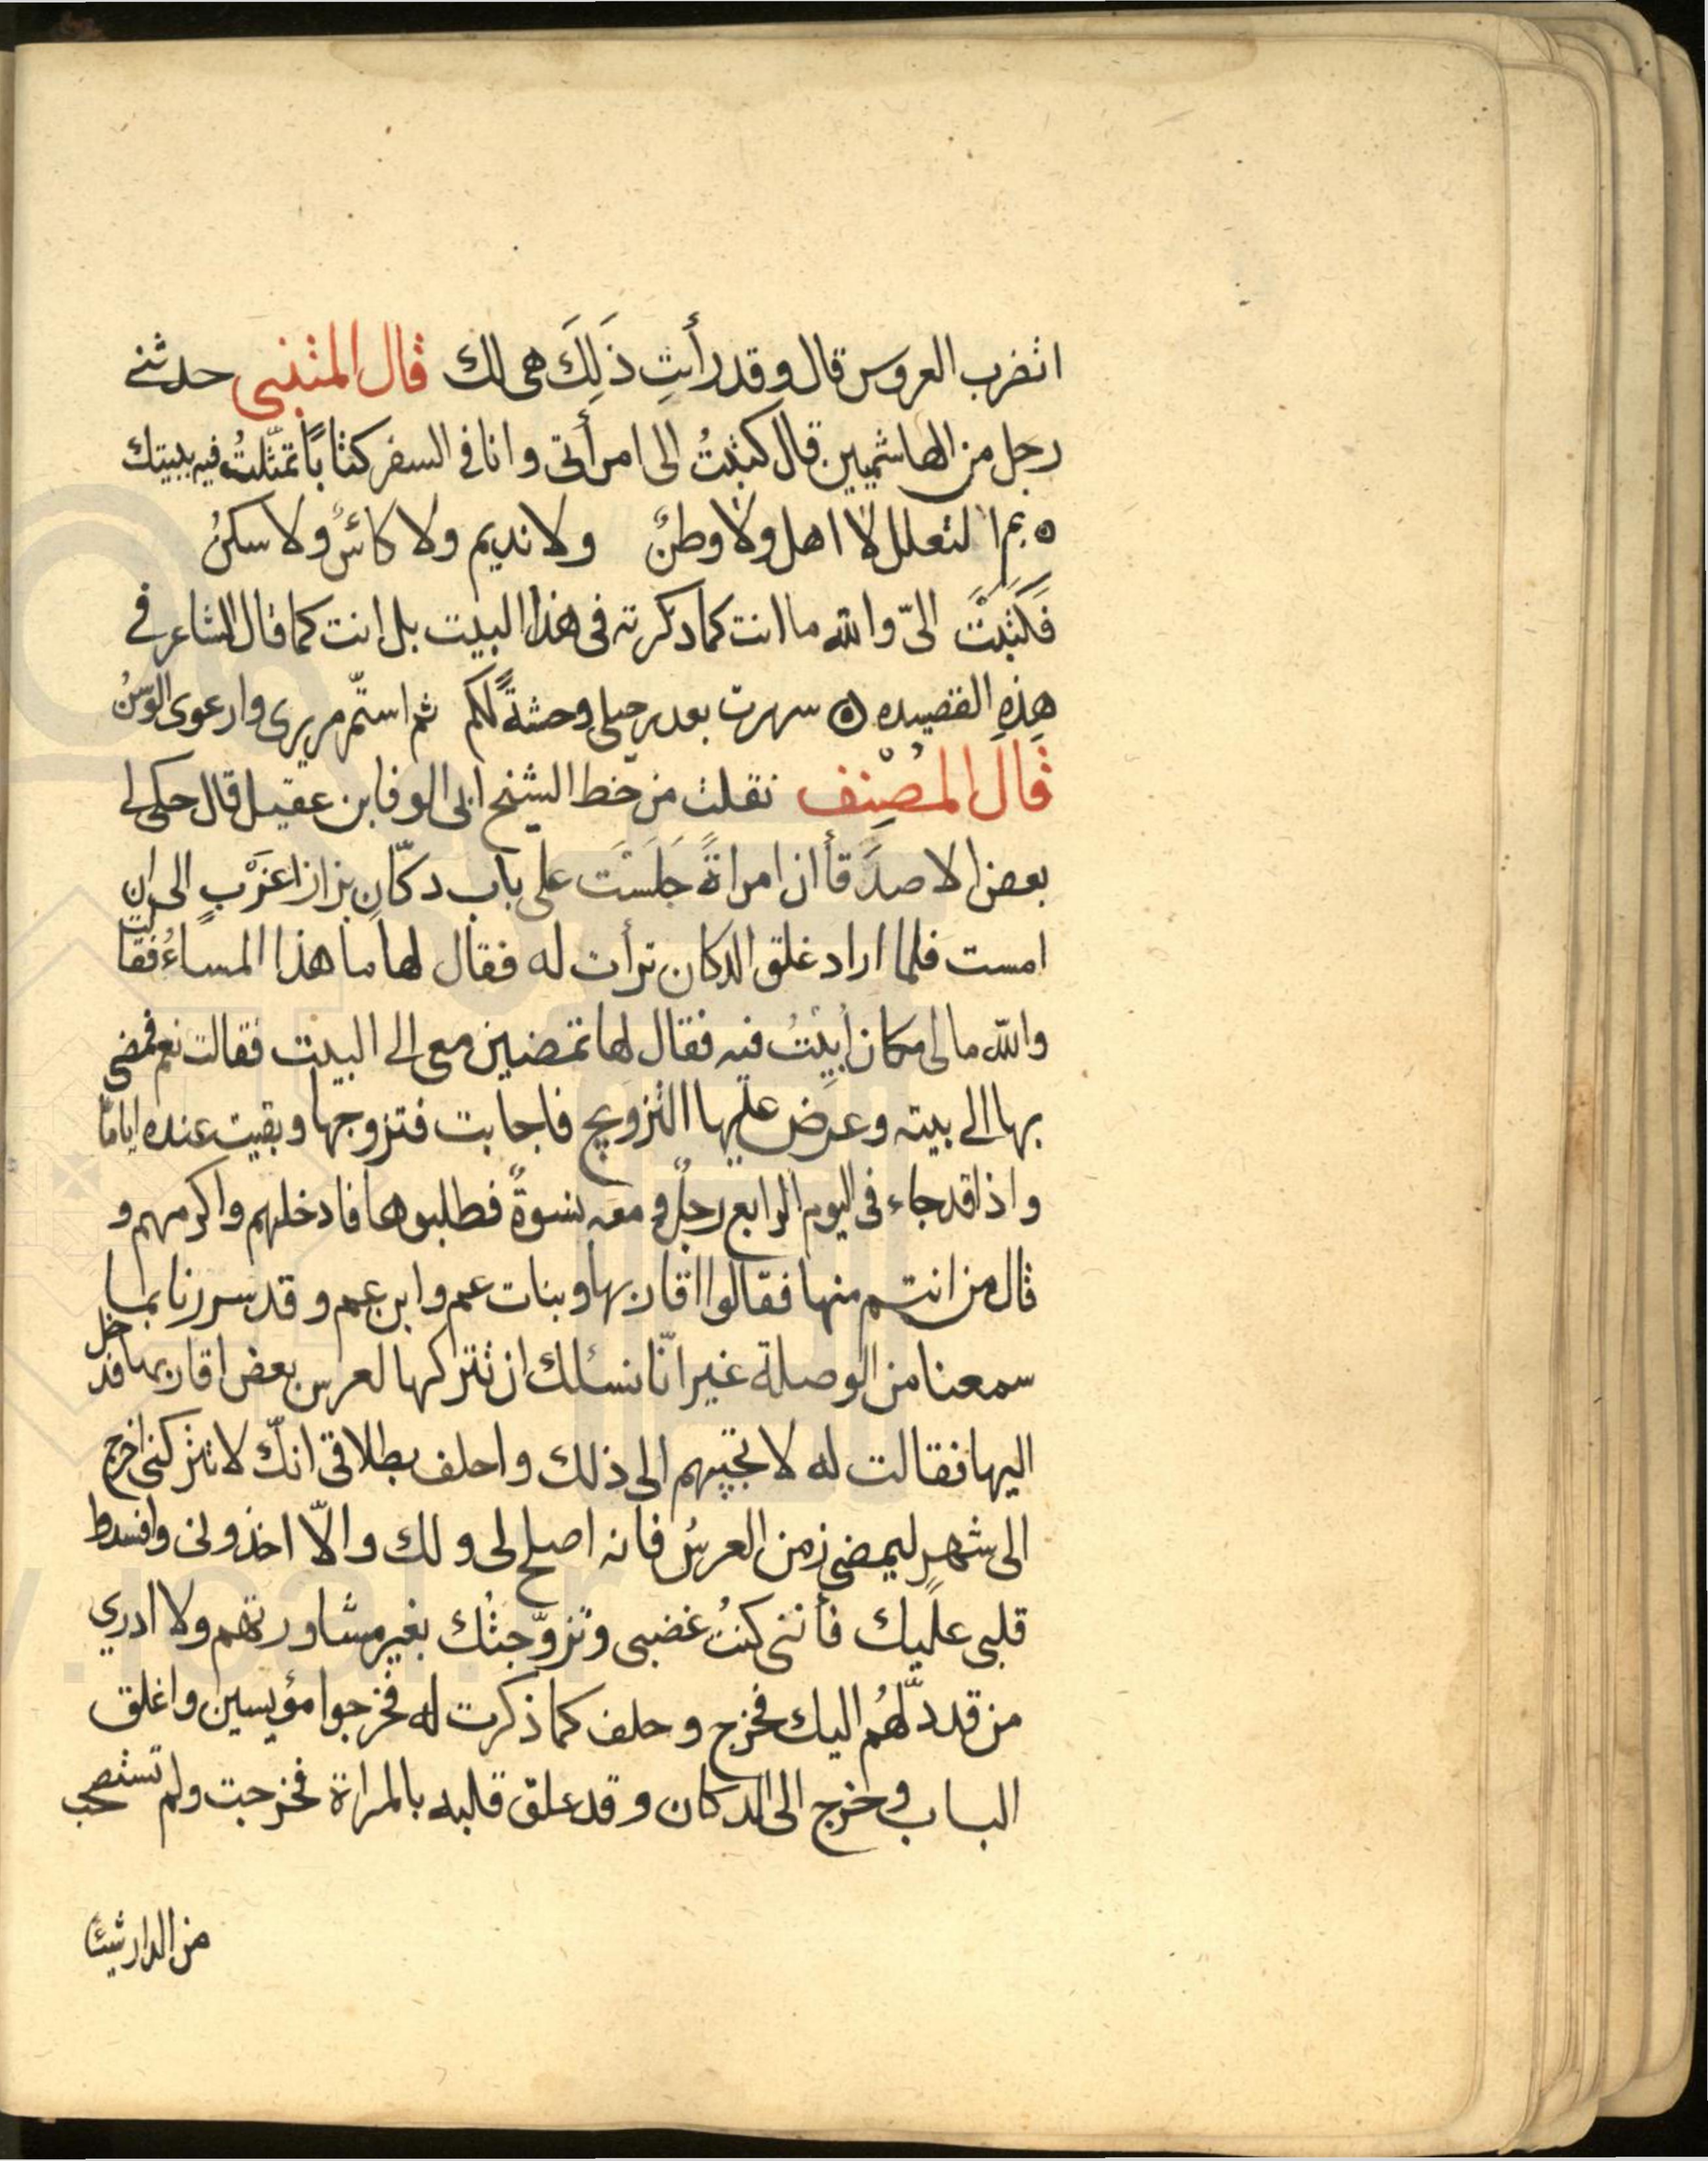 اتضرب العروس قال وقد رأيتِ ذَلِكَ هى لك قال المتنبى حدثنى
رجل من الهاشميين قال كتبتُ الى امرأتى وانا فى السفر كتابًا تمثّلتُ فيه ببيتك
ه بم التعلل لا اهل ولا وطنٌ ولا نديم ولا كائسٌ ولا سكنُ
فَكَتَبَتْ الىّ والله ما انت كما ذكرته فى هذا البيت بل انت كما قال الشاعر فى
هذِهِ القصيده ه سهرت بعد رحيلى وحشةً لكم ثم استمّر مريرى وارعوى الوَسَنُ
قالَ المُصْنِف نقلت من خط الشيخ ابى الوفا بن عقيل قال حكى لى
بعض الاصدَقأ ان امراةً جَلَسَت على باب دكّانِ بزاز اعزَبٍ الى ان
امست فلما اراد غلق الدكان ترأت له فقال لها ما هذا المساءُ فقالت
والله ما لى مكان أبِيْتُ فيه فقال لها تمضين معى الى البيت فقالت نعم فمضى
بها الى بيته وعرَض عليها التزويج فاجابت فتزوجها وبقيت عنده اياما
واذا قد جاء فى اليوم الرابع رجلٌ و معه نسوةٌ فطلبوها فادخلهم واكرمهم و
قال من انتم منها فقالوا اقاربها وبنات عم وابن عم و قد سررنا بما
سمعنا من الوصلة غير انّا نسئلك ان تتركها لعرس بعض اقاربها فدخل
اليها فقالت له لا تجبهم الى ذلك واحلف بطلاقى انك لا تتركنى اخرج
الى شهرٍ ليمضى زمن العرسُ فانه اصلح لى و لك والّا اخذونى وافسدوا
قلبى عليك فأننى كنتُ غضبى وتزوّجتُك بغير مشاورتهم ولا ادري
من قد دلّهُم اليك فخرج وحلف كما ذكرت له فخرجوا مؤيسين واغلق
الباب و خرج الى الدكان و قد علق قلبه بالمراة فخرجت ولم تستصحب
من الدار شيئا